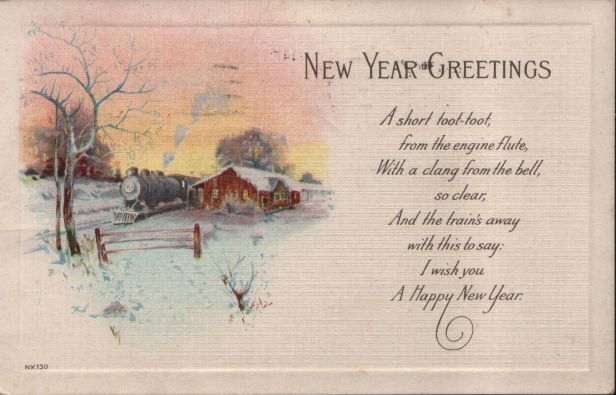 NEW YEAR GREETINGS
A short toot-toot,
from the engine flute,
With a clang from the bell,
so clear,
And the train's away
with this to say:
I wish you
A Happy New Year.
NY.130